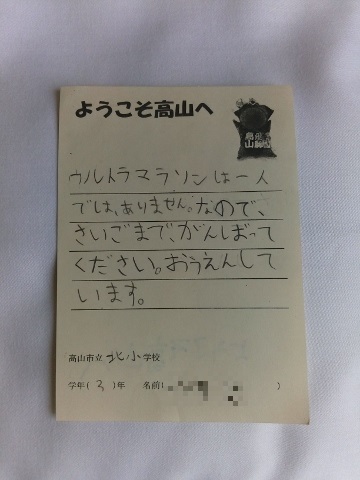 ようこそ高山へ
ウルトラマラソンは一人
では、ありません。なので、
さいごまで、がんばって
ください。おうえんして
います。
高山市立 北小学校
学年(3)年 名前( )